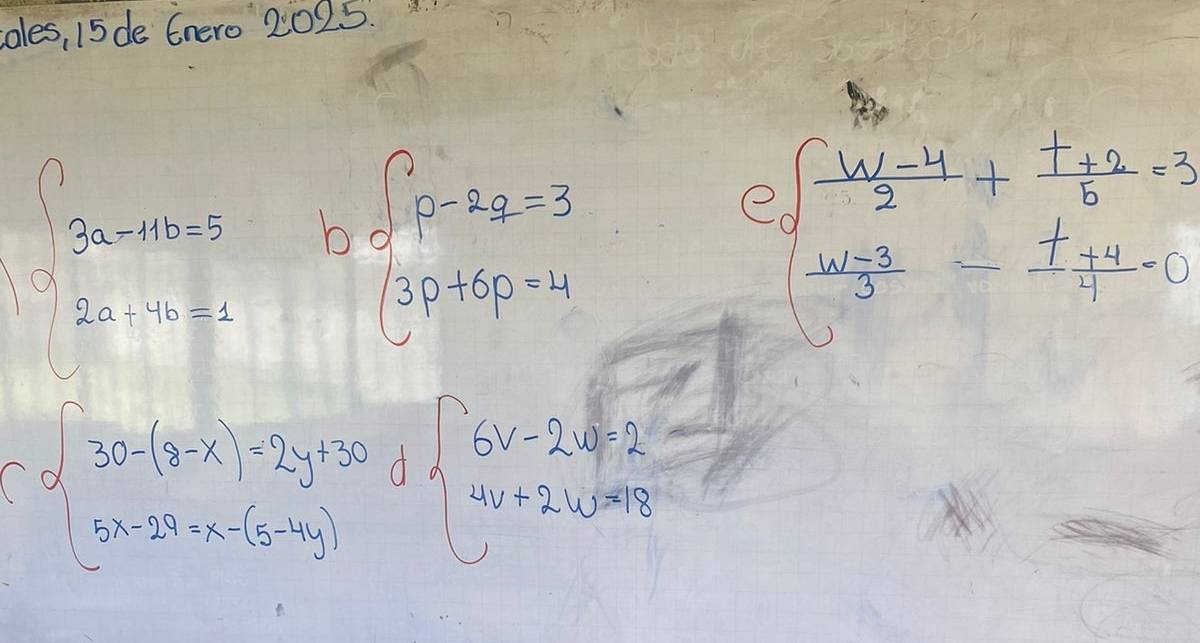 15 de Enero 2025.
3a-11b=5
2a+4b=1
b
p-2q=3
3p+6p=4
e
w-4/2 + t+2/5 =3
w-3/3 - t+4/4 =0
c
30-(8-x)=2y+30
5x-29=x-(5-4y)
d
6v-2w=2
4v+2w=18